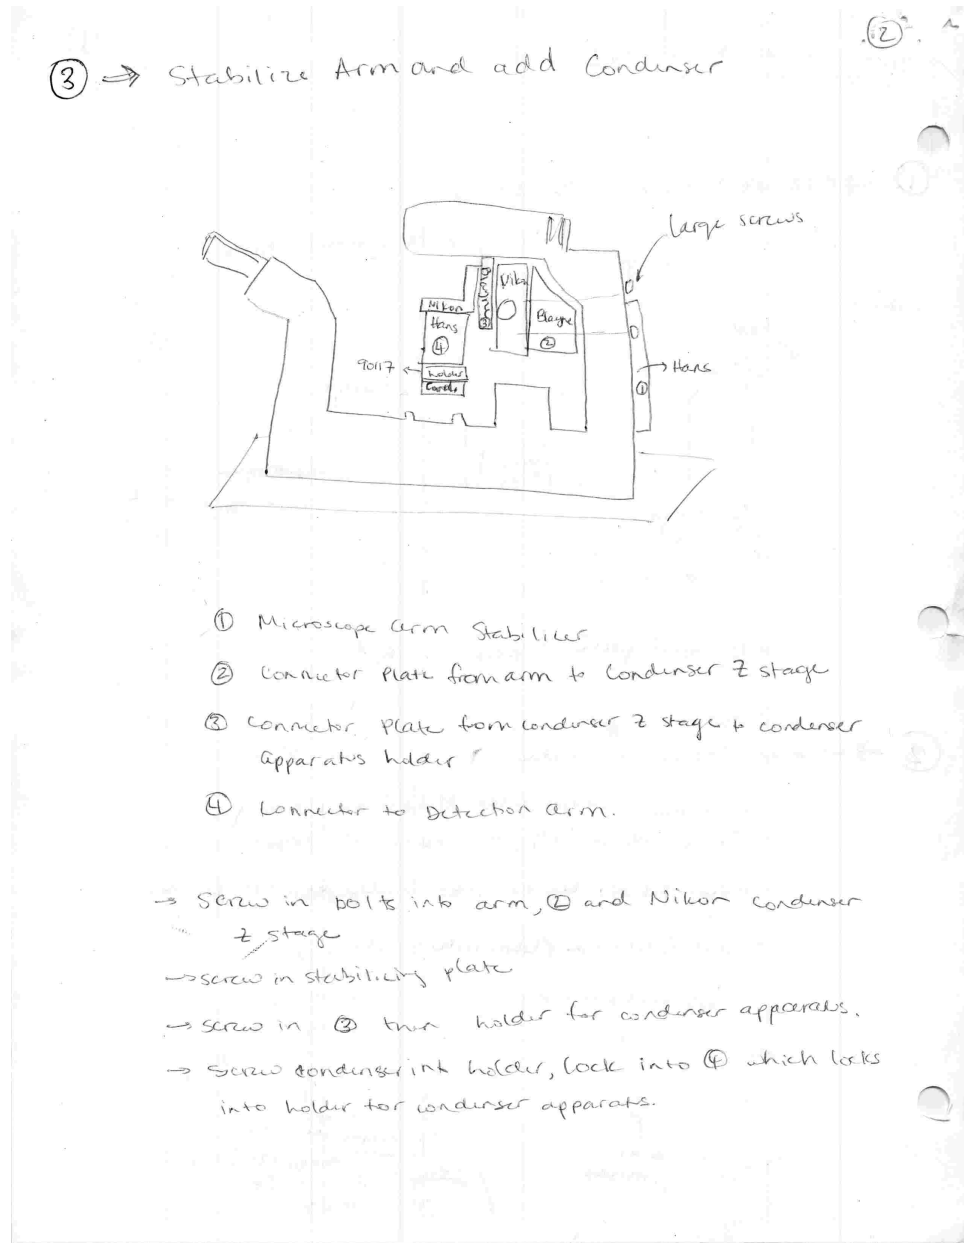 ②
③ ⇒ Stabilize Arm and add Condenser
large screws
Nikon
Hans
④
90117
holder
Cond.
③
Blayne
②
Hans
①
① Microscope arm Stabilizer
② Connector Plate from arm to Condenser Z stage
③ Connector Plate from condenser Z stage to condenser
apparatus holder
④ Connector to Detection arm.
→ Screw in bolts into arm, ② and Nikon condenser
Z stage
→ screw in stabilizing plate
→ screw in ③ then holder for condenser apparatus.
→ Screw condenser into holder, lock into ④ which locks
into holder for condenser apparatus.